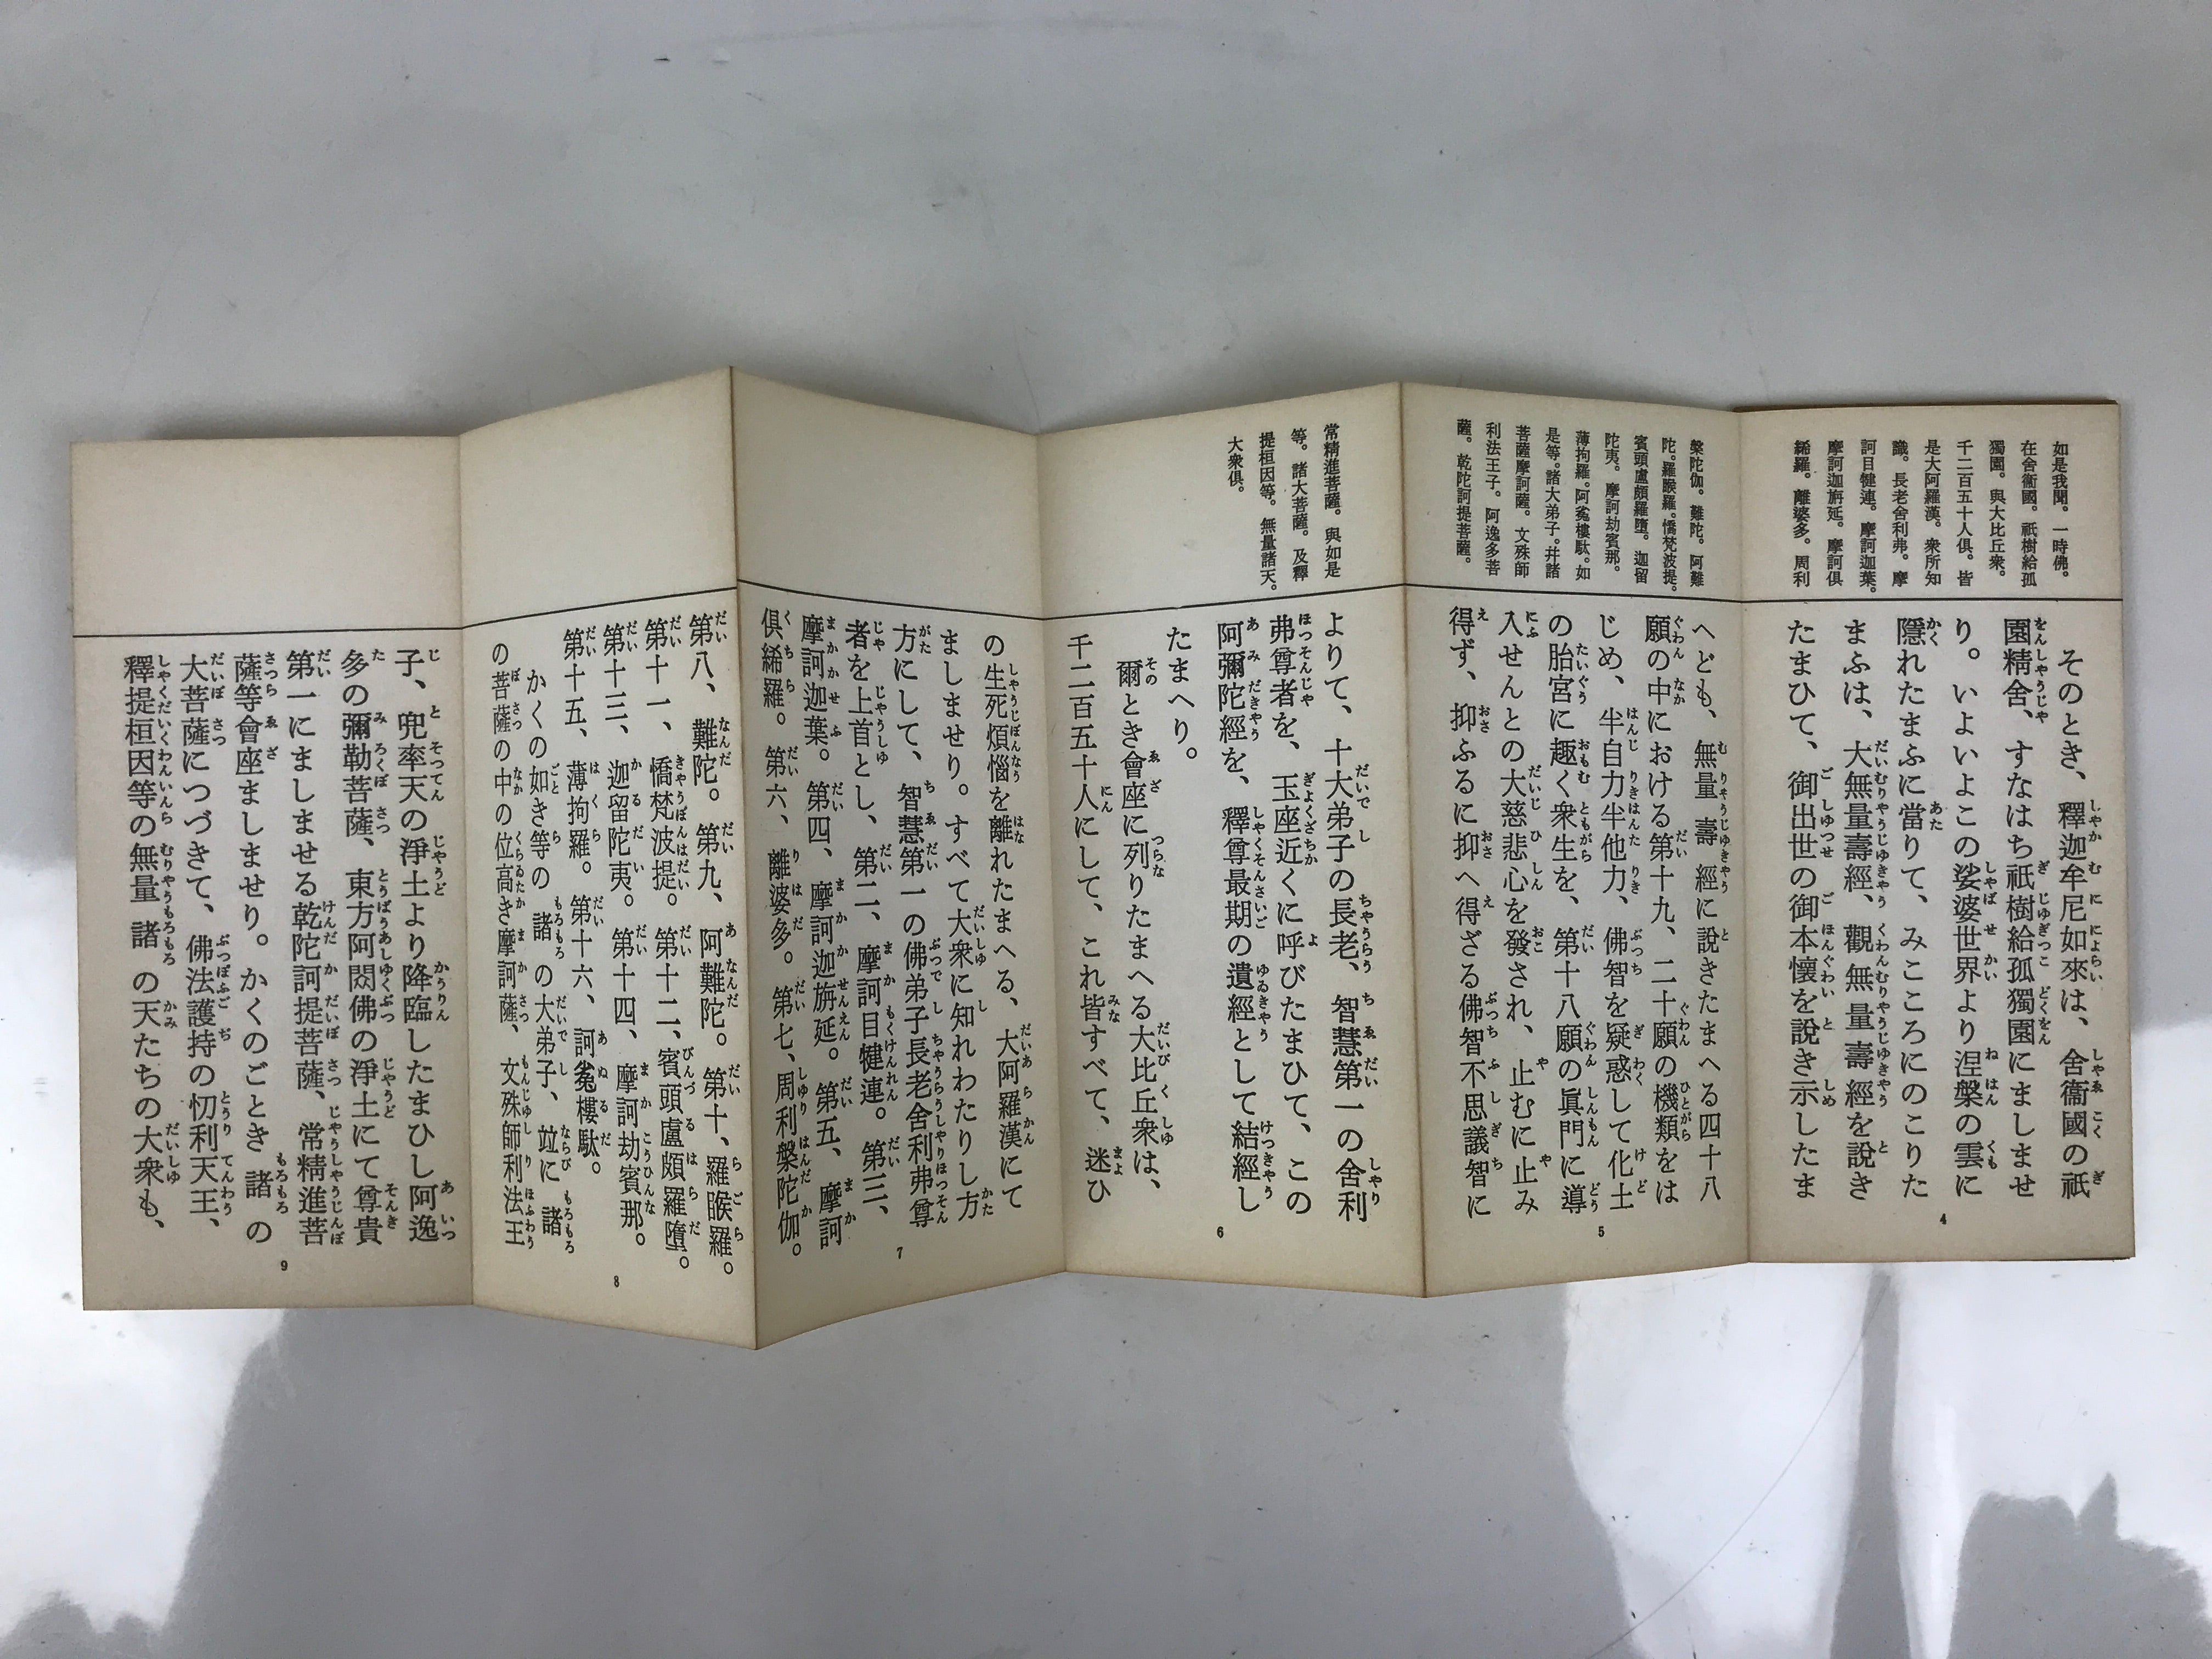 如是我聞。一時佛。
在舍衞國。祇樹給孤
獨園。與大比丘衆。
千二百五十人俱。皆
是大阿羅漢。衆所知
識。長老舍利弗。摩
訶目犍連。摩訶迦葉。
摩訶迦旃延。摩訶俱
絺羅。離婆多。周利
そのとき、釋迦牟尼如來は、舍衞國の祇
園精舍、すなはち祇樹給孤獨園にましませ
り。いよいよこの娑婆世界より涅槃の雲に
隱れたまふに當りて、みこころにのこりた
まふは、大無量壽經、觀無量壽經を說き
たまひて、御出世の御本懷を說き示したま
4
槃陀伽。難陀。阿難
陀。羅睺羅。憍梵波提。
賓頭盧頗羅墮。迦留
陀夷。摩訶劫賓那。
薄拘羅。阿㝹樓駄。如
是等。諸大弟子。幷諸
菩薩摩訶薩。文殊師
利法王子。阿逸多菩
薩。乾陀訶提菩薩。
へども、無量壽經に說きたまへる四十八
願の中における第十九、二十願の機類をは
じめ、半自力半他力、佛智を疑惑して化土
の胎宮に趣く衆生を、第十八願の眞門に導
入せんとの大慈悲心を發され、止むに止み
得ず、抑ふるに抑へ得ざる佛智不思議智に
5
常精進菩薩。與如是
等。諸大菩薩。及釋
提桓因等。無量諸天。
大衆俱。
よりて、十大弟子の長老、智慧第一の舍利
弗尊者を、玉座近くに呼びたまひて、この
阿彌陀經を、釋尊最期の遺經として結經し
たまへり。
爾とき會座に列りたまへる大比丘衆は、
千二百五十人にして、これ皆すべて、迷ひ
6
の生死煩惱を離れたまへる、大阿羅漢にて
ましませり。すべて大衆に知れわたりし方
方にして、智慧第一の佛弟子長老舍利弗尊
者を上首とし、第二、摩訶目犍連。第三、
摩訶迦葉。第四、摩訶迦旃延。第五、摩訶
俱絺羅。第六、離婆多。第七、周利槃陀伽。
7
第八、難陀。第九、阿難陀。第十、羅睺羅。
第十一、憍梵波提。第十二、賓頭盧頗羅墮。
第十三、迦留陀夷。第十四、摩訶劫賓那。
第十五、薄拘羅。第十六、訶㝹樓駄。
かくの如き等の諸の大弟子、竝に諸
の菩薩の中の位高き摩訶薩、文殊師利法王
8
子、兜率天の淨土より降臨したまひし阿逸
多の彌勒菩薩、東方阿閦佛の淨土にて尊貴
第一にましませる乾陀訶提菩薩、常精進菩
薩等會座ましませり。かくのごとき諸の
大菩薩につづきて、佛法護持の忉利天王、
釋提桓因等の無量諸の天たちの大衆も、
9